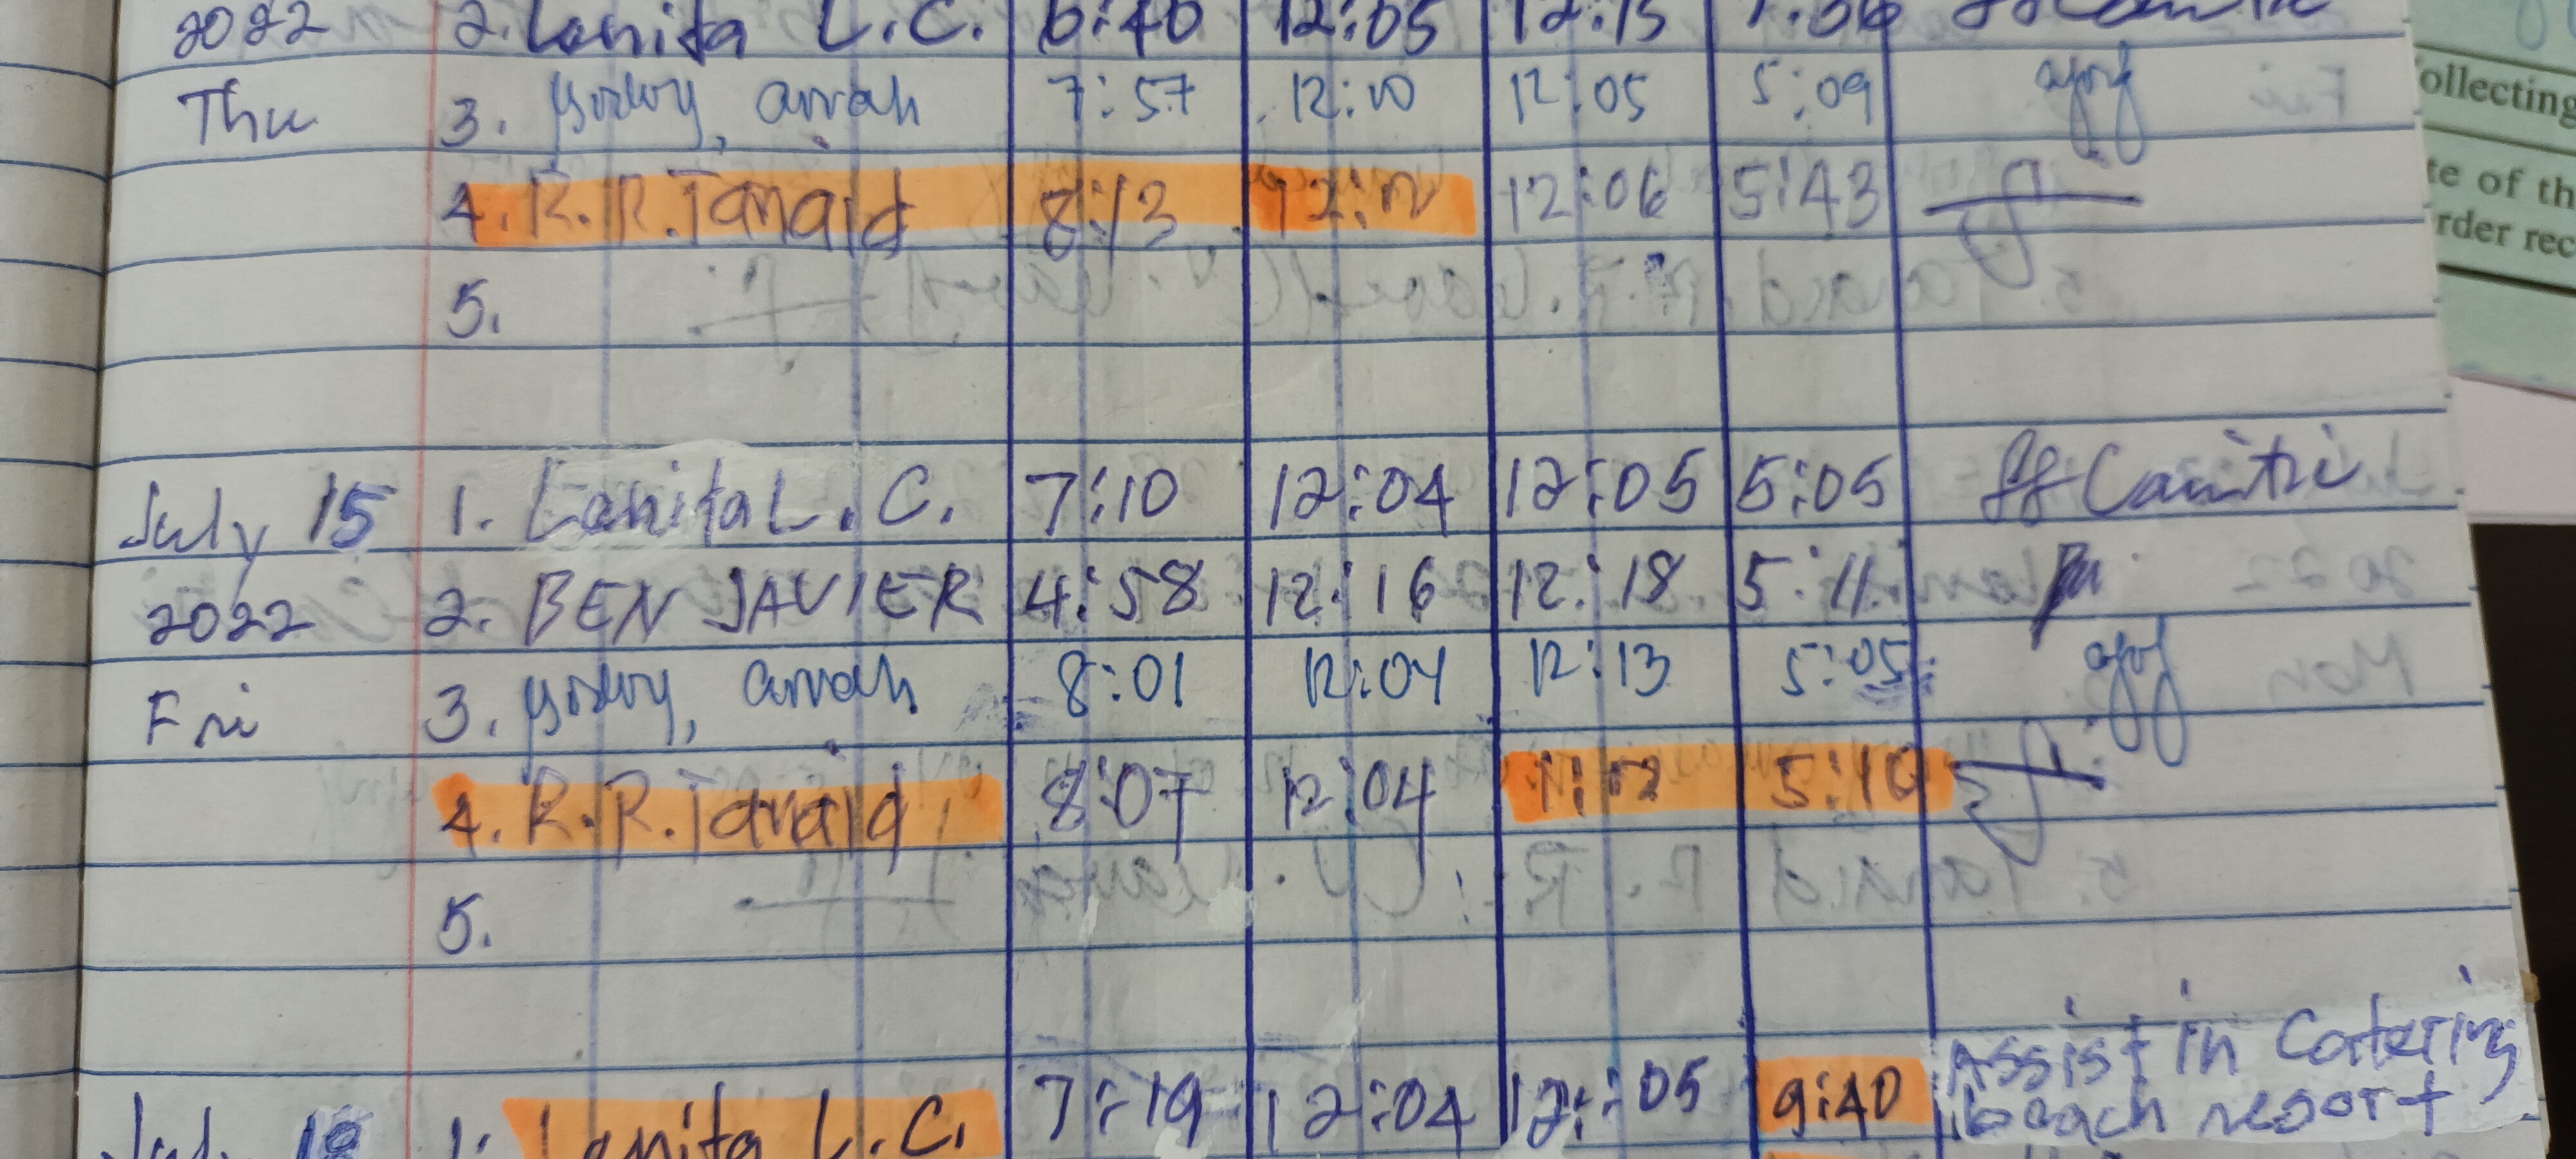 2022 2. Lanita L.C. 6:40 12:05 12:15
Thu 3. yorloy, arrah 7:57 12:10 12:05 5:09
4. R.R. Tanaid 8:13 12:06 5:43
5.
July 15 1. Lanita L. C. 7:10 12:04 12:05 5:05
2022 2. BEN JAVIER 4:58 12:16 12:18 5:11
Fri 3. arrah 8:01 12:04 12:13 5:05
4. R.R. Tanaid 8:07 12:04 1:12 5:10
5.
Assist in Catering
July 18 1. Lanita L.C. 7:19 12:04 12:05 9:40 beach resort
ollecting
te of th
rder rec